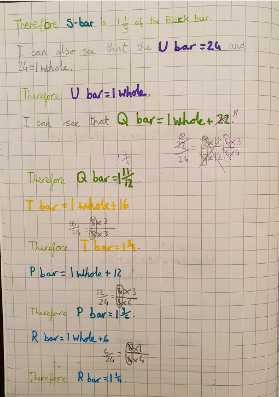 Therefore S-bar is 1 1/3 of the Black bar.
I can also see that the U bar=24 and
24=1 whole.
Therefore U bar=1 whole.
I can see that Q bar=1 whole+22.
Therefore Q bar=1 11/12.
T bar=1 whole+16
16/24 = 8x2/8x3
Therefore T bar=1 2/3.
P bar=1 whole+12
12/24
Therefore P bar=1
R bar=1 whole+6
6/24 = 6x1/6x4
Therefore R bar=1 1/4.